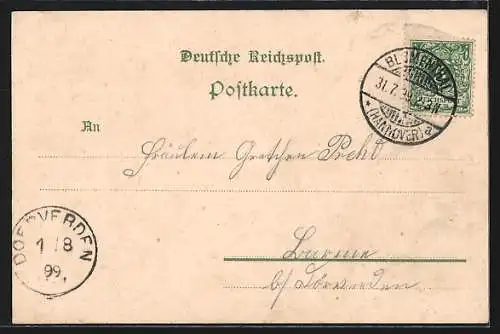 Deutsche Reichspost.
Postkarte.
BLUMENTHAL
31.7.99
(HANNOVER)
An
Fräulein Gretchen Precht
DOERVERDEN
1/8
99.
Barme
b/ Dörverden